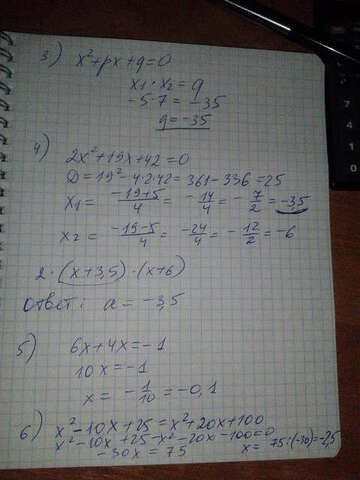 3) x²+px+q=0
x₁·x₂=q
-5·7=-35
q=-35
4) 2x²+19x+42=0
D=19²-4·2·42=361-336=25
x₁=\frac{-19+5}{4}=-\frac{14}{4}=-\frac{7}{2}=-3,5
x₂=\frac{-19-5}{4}=\frac{-24}{4}=-\frac{12}{2}=-6
2·(x+3,5)·(x+6)
ответ: a=-3,5
5) 6x+4x=-1
10x=-1
x=-\frac{1}{10}=-0,1
6) x²-10x+25=x²+20x+100
x²-10x+25-x²-20x-100=0
-30x=75 x=75:(-30)=-2,5